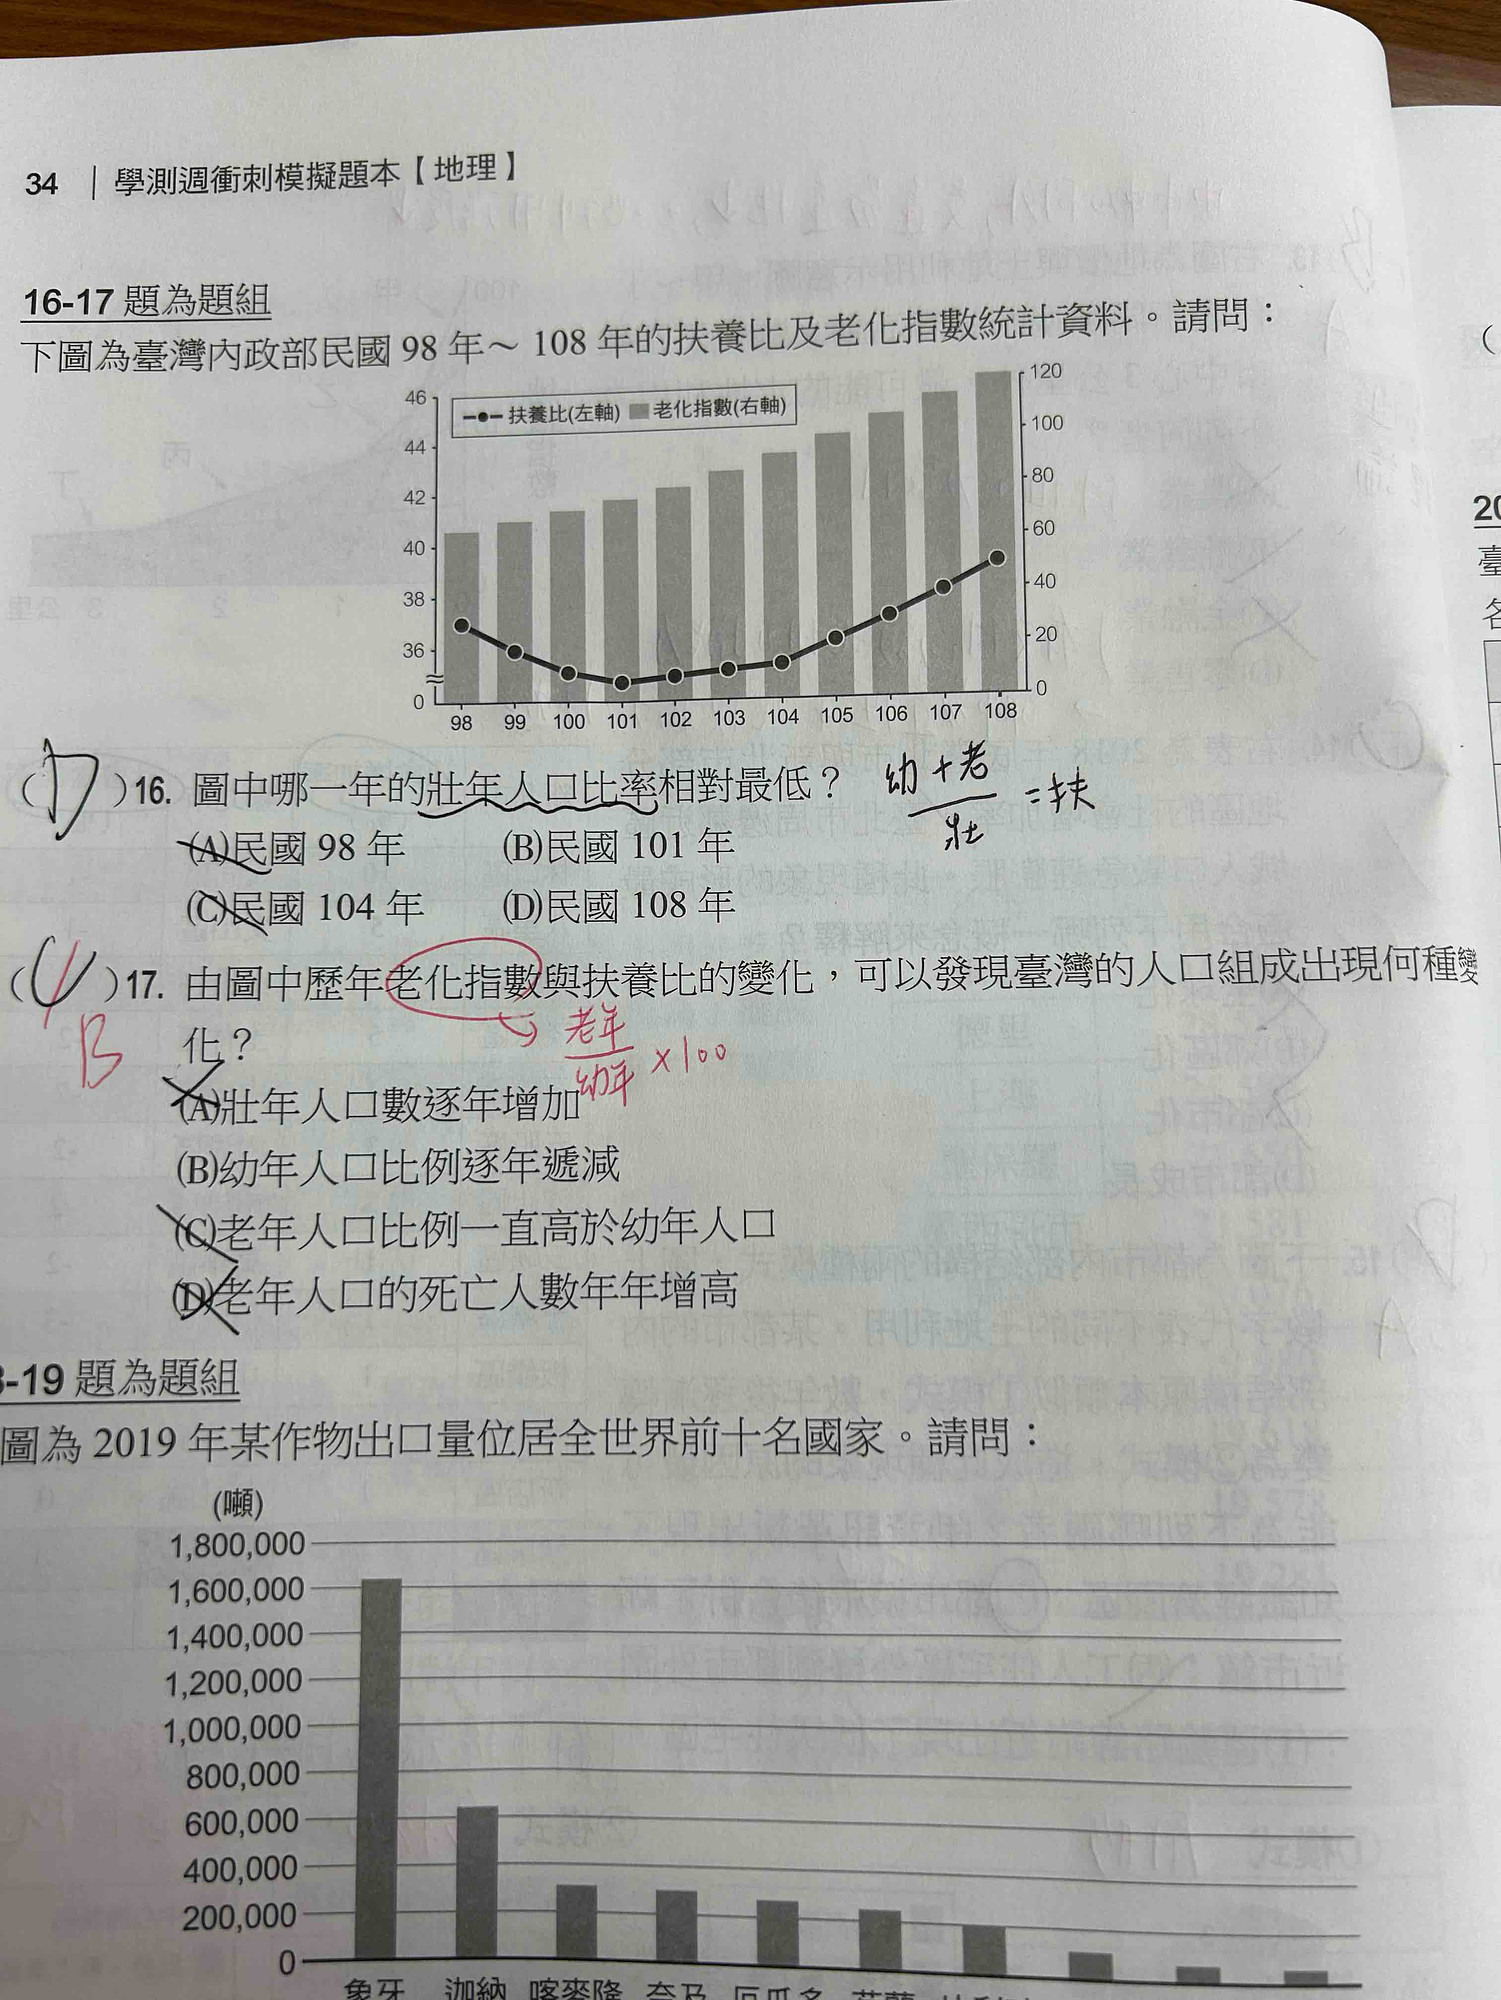 34 | 學測週衝刺模擬題本【地理】
16-17 題為題組
下圖為臺灣內政部民國 98 年～ 108 年的扶養比及老化指數統計資料。請問：
扶養比(左軸) 老化指數(右軸)
46
44
42
40
38
36
0
120
100
80
60
40
20
0
98 99 100 101 102 103 104 105 106 107 108
(D)16. 圖中哪一年的壯年人口比率相對最低？
幼+老
壯
=扶
(A)民國 98 年 (B)民國 101 年
(C)民國 104 年 (D)民國 108 年
(C)17. 由圖中歷年老化指數與扶養比的變化，可以發現臺灣的人口組成出現何種變
B
化？
老年
幼年
×100
(A)壯年人口數逐年增加
(B)幼年人口比例逐年遞減
(C)老年人口比例一直高於幼年人口
(D)老年人口的死亡人數年年增高
-19 題為題組
圖為 2019 年某作物出口量位居全世界前十名國家。請問：
(噸)
1,800,000
1,600,000
1,400,000
1,200,000
1,000,000
800,000
600,000
400,000
200,000
0
象牙 迦納 喀麥隆 奈及 厄瓜多
20
臺
各